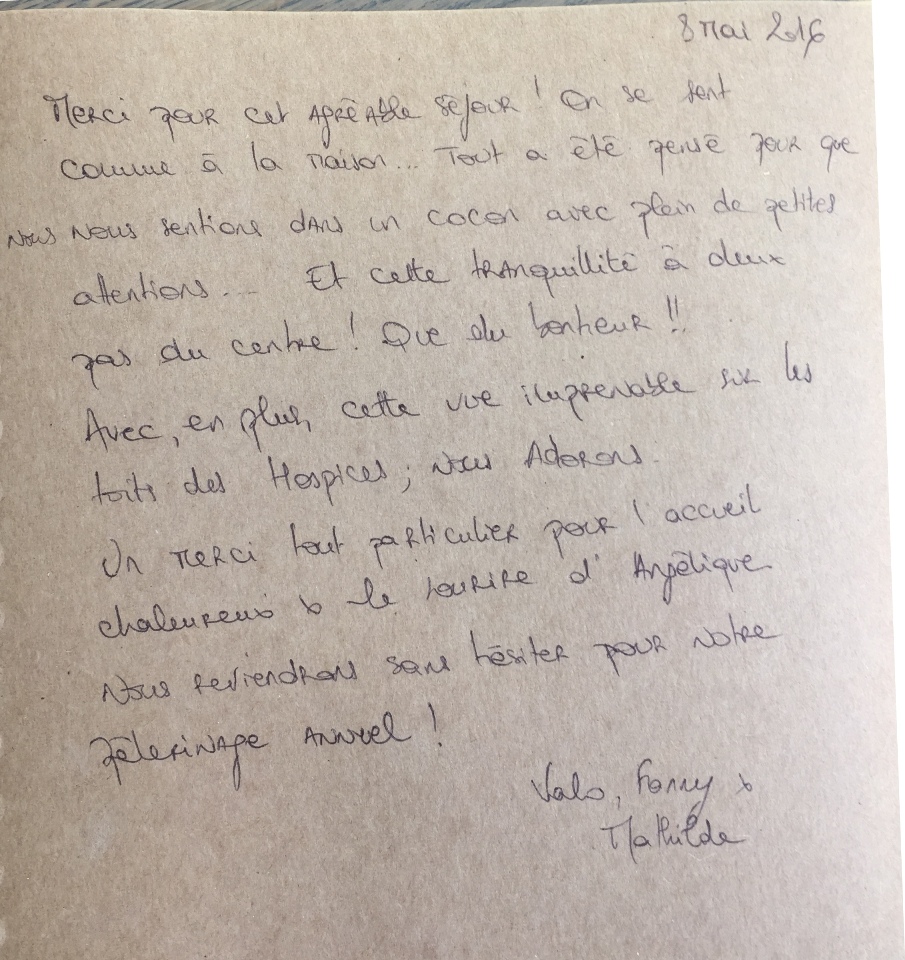 8 Mai 2016
Merci pour cet agréable séjour ! On se sent
comme à la maison... Tout a été pensé pour que
Nous nous sentions dans un cocon avec plein de petites
attentions... Et cette tranquillité à deux
pas du centre ! Que du bonheur !!
Avec, en plus, cette vue imprenable sur les
toits des Hospices ; nous Adorons.
Un merci tout particulier pour l'accueil
chaleureux & le sourire d'Angélique
Nous reviendrons sans hésiter pour notre
pélerinage annuel !
Valo, Fanny &
Mathilde